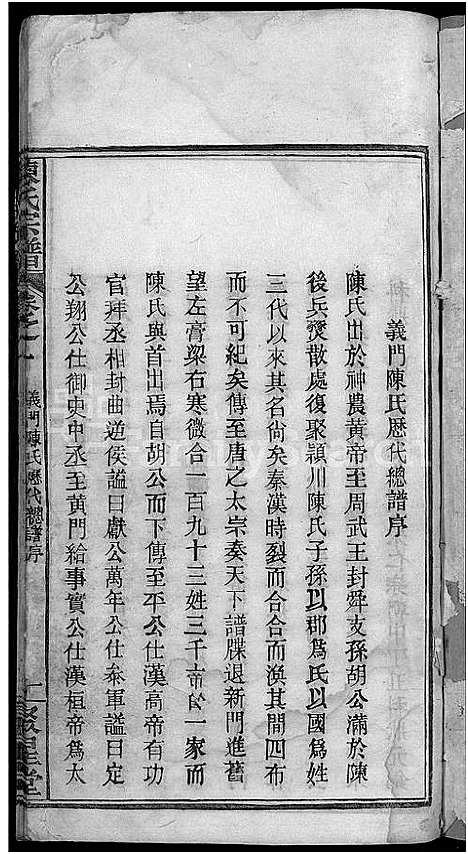 義門陳氏歷代總譜序
陳氏出於神農黃帝至周武王封舜支孫胡公滿於陳
後兵燹散處復聚頴川陳氏子孫以郡爲氏以國爲姓
三代以來其名尙矣秦漢時裂而合合而渙其間四布
而不可紀矣傳至唐之太宗奏天下譜牒退新門進舊
望左膏粱右寒微合一百九十三姓三千帝
一家而
陳氏與首出焉自胡公而下傳至平公仕漢高帝有功
官拜丞相封曲逆侯謚曰獻公萬年公仕叅軍謚曰定
公翔公仕御史中丞至黃門給事實公仕漢桓帝爲太
陳氏宗譜
卷之一
義門陳氏歷代總譜序
聚星堂